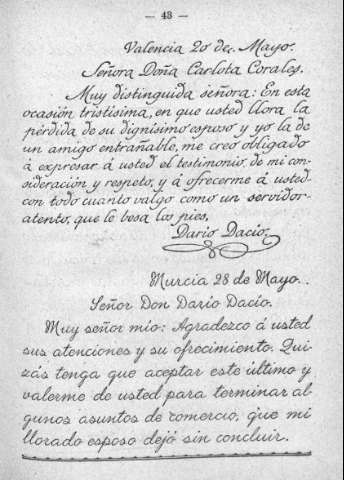 — 43 —
Valencia 20 de Mayo.
Señora Doña Carlota Corales.
Muy distinguida señora: En esta
ocasión tristísima, en que usted llora la
pérdida de su dignísimo esposo y yo la de
un amigo entrañable, me creo obligado
á expresar á usted el testimonio de mi con-
sideración y respeto, y á ofrecerme á usted
con todo cuanto valgo como un servidor
atento, que le besa los pies,
Dario Dacio.
Murcia 28 de Mayo.
Señor Don Dario Dacio.
Muy señor mio: Agradezco á usted
sus atenciones y su ofrecimiento. Qui-
zás tenga que aceptar este último y
valerme de usted para terminar al-
gunos asuntos de comercio, que mi
llorado esposo dejó sin concluir.